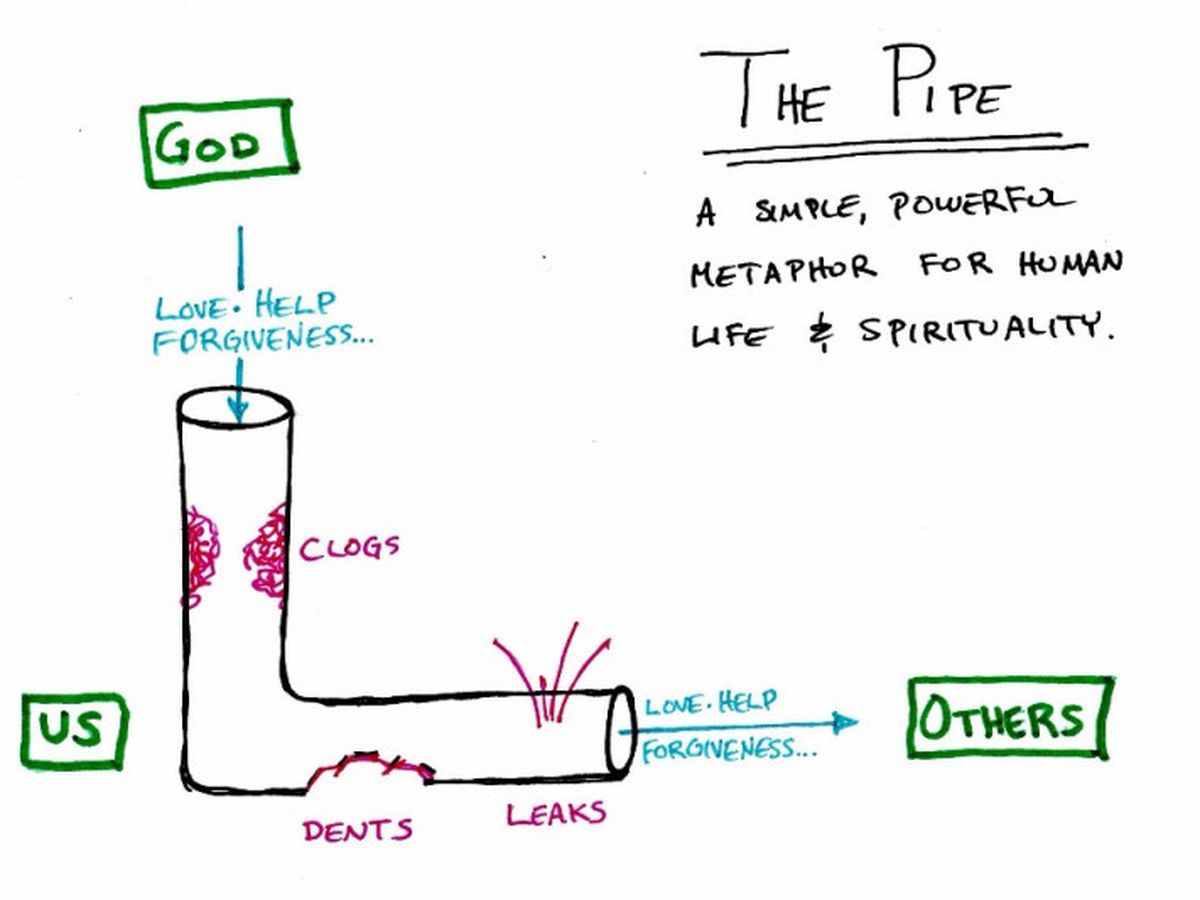 THE PIPE
A SIMPLE, POWERFUL
METAPHOR FOR HUMAN
LIFE & SPIRITUALITY.
GOD
LOVE · HELP
FORGIVENESS...
CLOGS
US
DENTS
LEAKS
LOVE · HELP
FORGIVENESS...
OTHERS